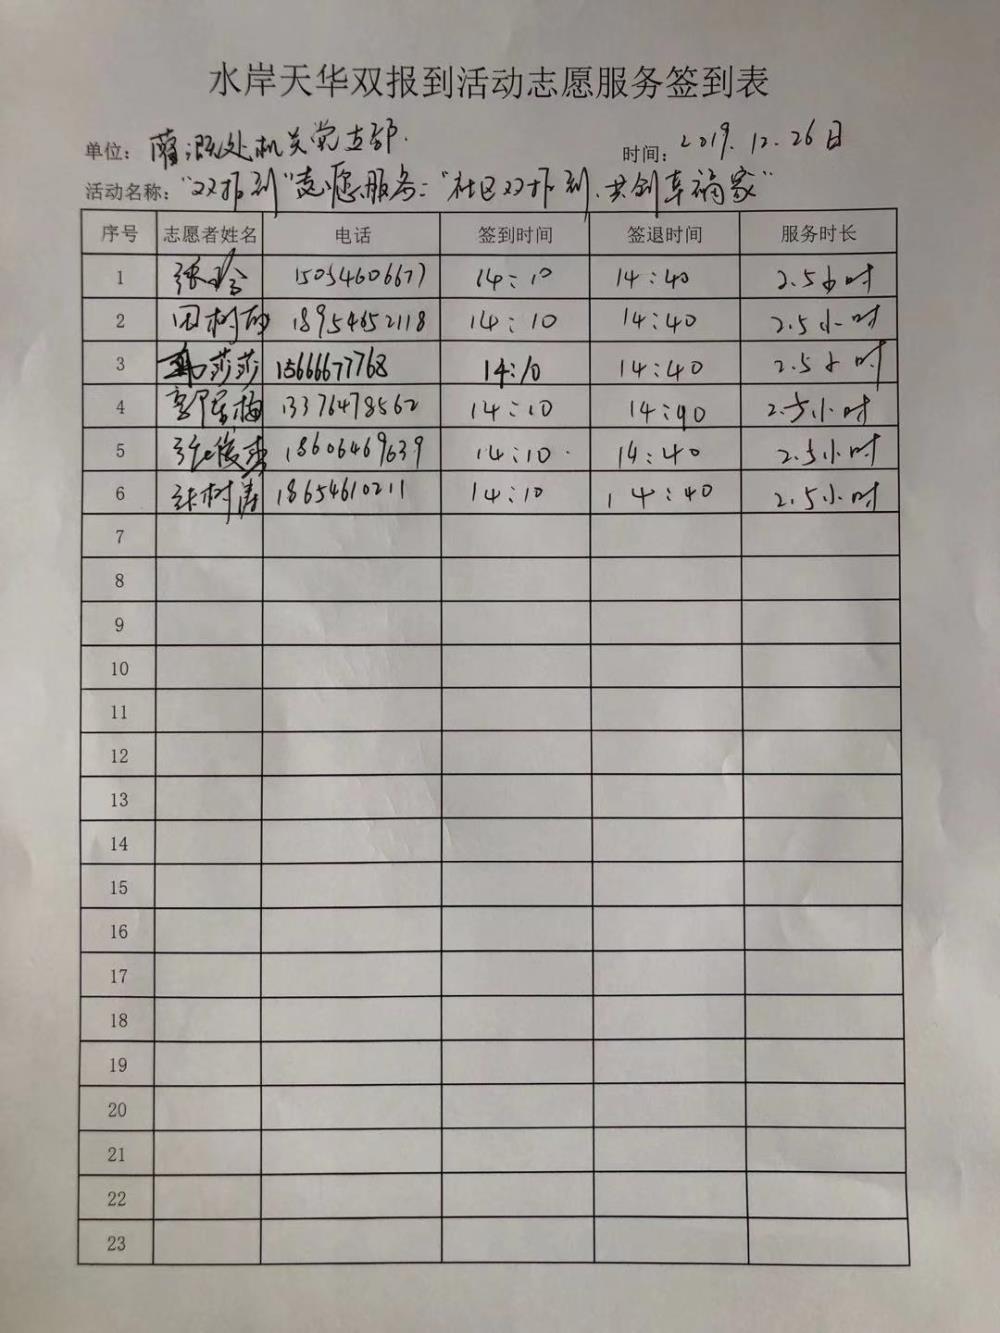 水岸天华双报到活动志愿服务签到表
单位: 处机关党支部. 时间: 2019.12.26日
活动名称: "双报到"志愿服务: "社区双报到.共创幸福家"
序号 志愿者姓名 电话 签到时间 签退时间 服务时长
1 张玲 15054606677 14:10 14:40 2.5小时
2 田树 18954652118 14:10 14:40 2.5小时
3 莎莎 15666677768 14:10 14:40 2.5小时
4 郭 梅 13376478562 14:10 14:40 2.5小时
5 张俊 18606469639 14:10 14:40 2.5小时
6 张树涛 18654610211 14:10 14:40 2.5小时
7
8
9
10
11
12
13
14
15
16
17
18
19
20
21
22
23